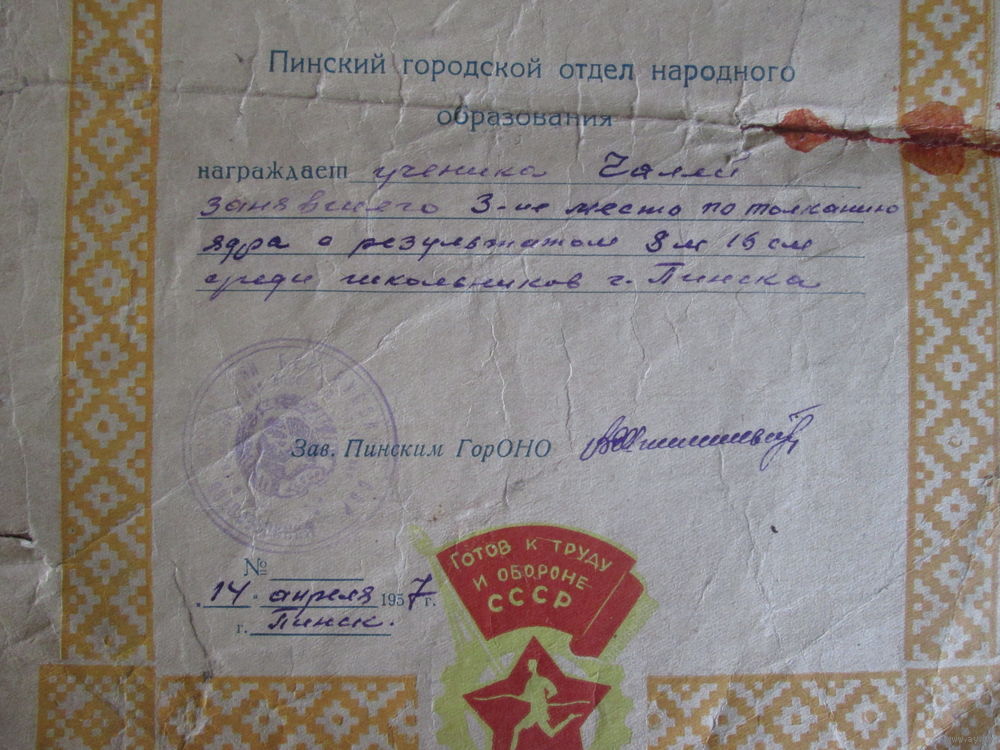 Пинский городской отдел народного
образования
награждает ученика
занявшего 3-ие место по толканию
ядра с результатом 8 м 16 см
среди школьников г. Пинска
Зав. Пинским ГорОНО
№
"14" апреля 1957 г.
г. Пинск.
ГОТОВ К ТРУДУ
И ОБОРОНЕ
СССР